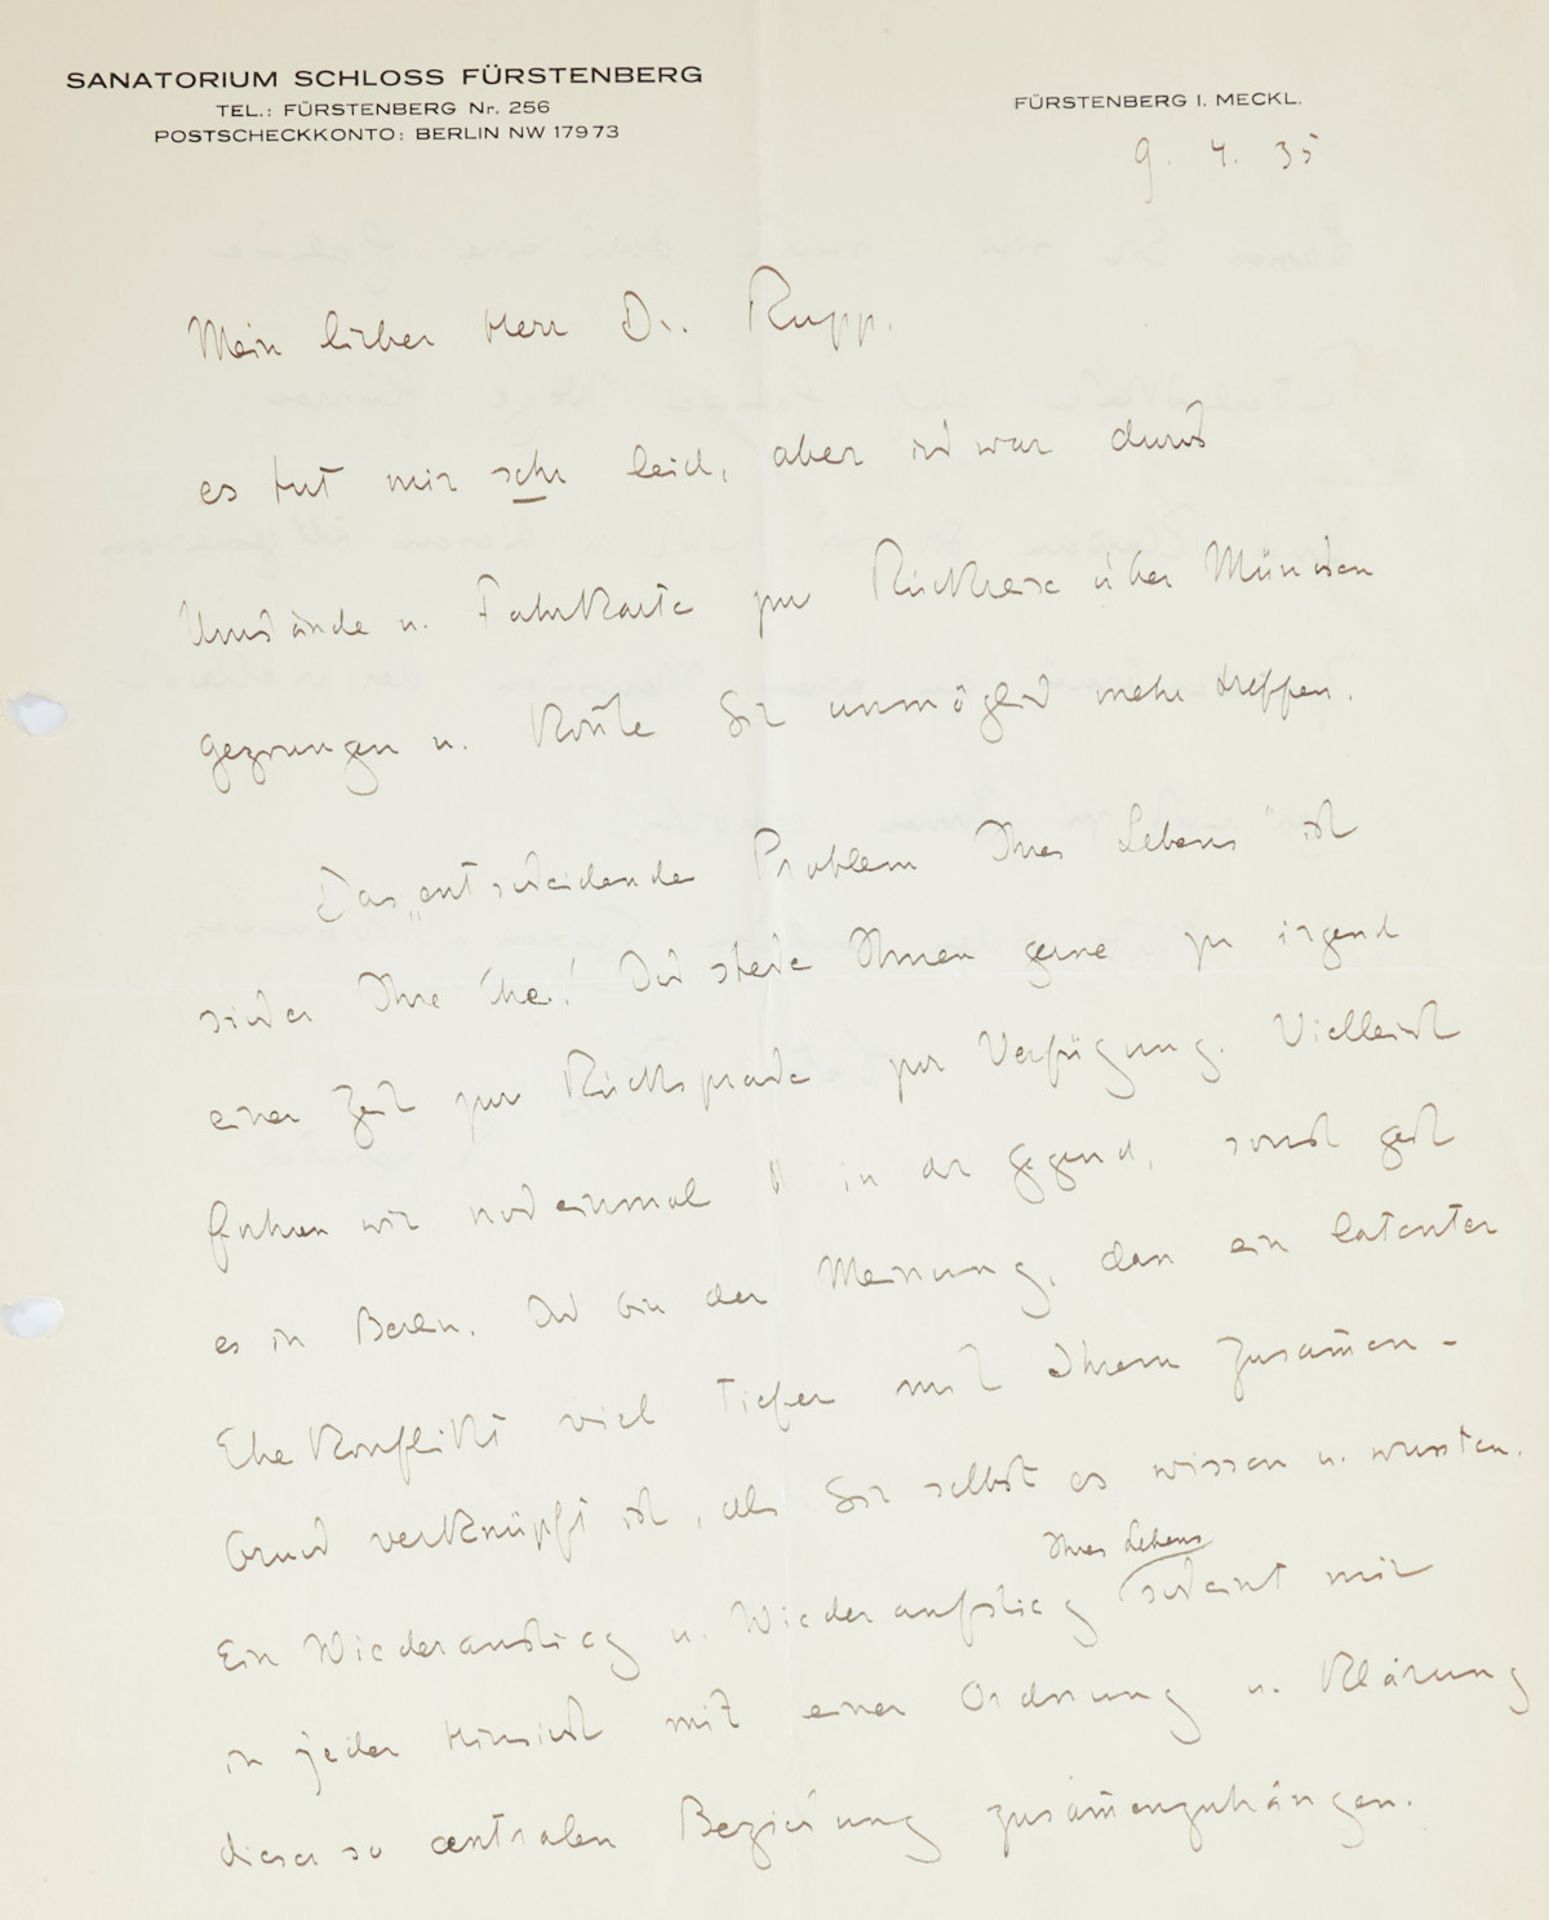 SANATORIUM SCHLOSS FÜRSTENBERG
TEL.: FÜRSTENBERG Nr. 256
POSTSCHECKKONTO: BERLIN NW 17973
FÜRSTENBERG I. MECKL.
9. 4. 35
Mein lieber Herr Dr. Rupp.
es tut mir sehr leid, aber ich war durch
Umstände u. Fahrkarte zur Rückreise über München
gezwungen u. kon̅te Sie unmöglich mehr treffen.
Das „entscheidende Problem Ihres Lebens ist
sicher Ihre Ehe! Ich stehe Ihnen gerne zu irgend
einer Zeit zur Rücksprache zur Verfügung. Vielleicht
fahren wir noch einmal in der Gegend, sonst geht
es in Berlin. Ich bin der Meinung, dass ein latenter
Ehekonflikt viel tiefer mit Ihrem Zusam̅en-
bruch verknüpft ist, als Sie selbst es wissen u. wussten.
Ihres Lebens
Ein Wiederanstieg u. Wiederaufstieg scheint mir
in jeder Hinsicht mit einer Ordnung u. Klärung
dieser so centralen Beziehung zusam̅enzuhängen.